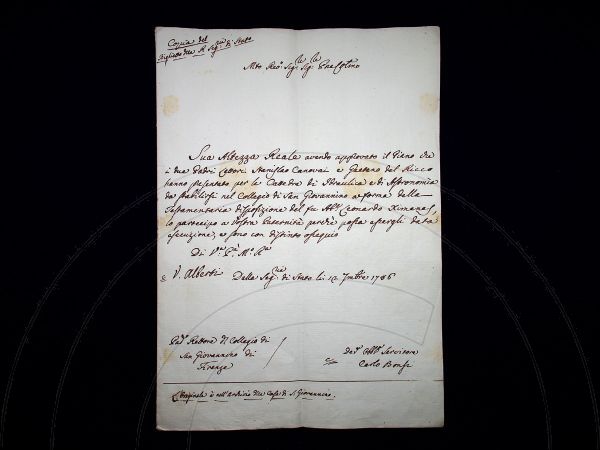 Copia del
Biglietto della R. Seg.ria di Stato
Molto Rev. Sig.re Sig.re
Sua Altezza Reale avendo approvato il Piano che
i due Padri Lettori Stanislao Canovai e Gaetano del Ricco
hanno presentato per le Cattedre di Idraulica e di Astronomia
da stabilirsi nel Collegio di San Giovannino a forma della
Testamentaria disposizione del fu Ab.e Leonardo Ximenes,
lo partecipo a Vostra Paternità perchè possa essergli data
esecuzione, e sono con distinto ossequio
Di V.a P.tà M.o R.da
V. Alberti Dalla Seg.ria di Stato li 12 7mbre 1786
Pad.e Rettore del Collegio di
San Giovannino di
Firenze
Servitore
Carlo Bonsi
L'Originale è nell'Archivio della Casa di S. Giovannino.